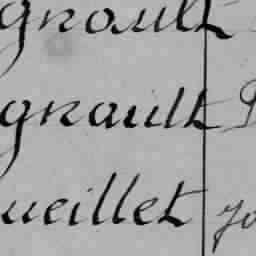 gnault
gnault
ueillet